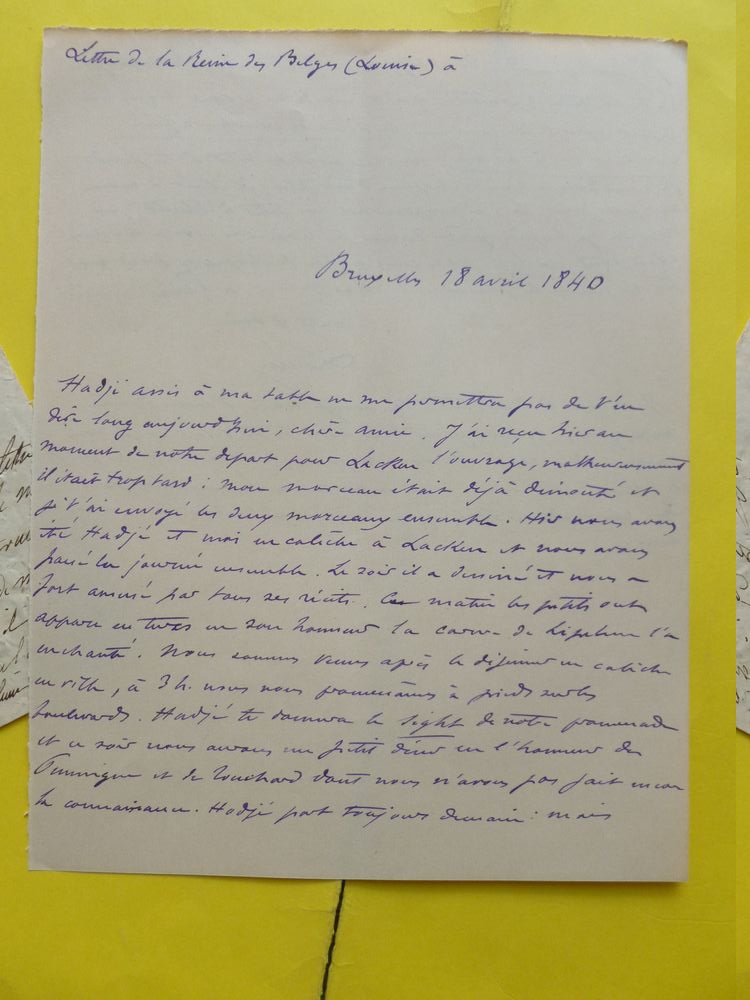 Lettre de la Reine des Belges (Louise) à
Bruxelles 18 avril 1840
Hadjé assis à ma table ne me permettra pas de t'en
dire long aujourd'hui, chère amie. J'ai reçu hier au
moment de notre départ pour Lacken l'ouvrage, malheureusement
il était trop tard : mon morceau était déjà démonté et
je t'ai envoyé les deux morceaux ensemble. Hier nous avons
été Hadjé et moi en calèche à Lacken et nous avons
passé la journée ensemble. Le soir il a dessiné et nous a
fort amusé par tous ses récits. Ce matin les petits ont
apparu en turcs en son honneur la de l'a
enchanté. Nous sommes venus après le déjeuner en calèche
en ville, à 3 h. nous nous promenâmes à pieds sur les
boulevards. Hadjé te donnera le sight de notre promenade
et ce soir nous avons un petit dîner en l'honneur de
et de Touchard dont nous n'avons pas fait encore
la connaissance. Hadjé part toujours demain : mais